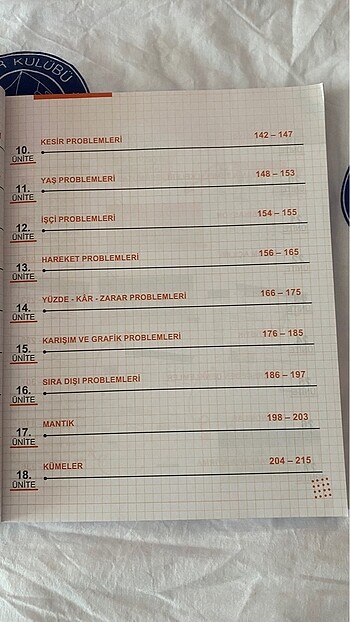 R KULÜBÜ
10. ÜNİTE KESİR PROBLEMLERİ 142 – 147
11. ÜNİTE YAŞ PROBLEMLERİ 148 – 153
12. ÜNİTE İŞÇİ PROBLEMLERİ 154 – 155
13. ÜNİTE HAREKET PROBLEMLERİ 156 – 165
14. ÜNİTE YÜZDE - KÂR - ZARAR PROBLEMLERİ 166 – 175
15. ÜNİTE KARIŞIM VE GRAFİK PROBLEMLERİ 176 – 185
16. ÜNİTE SIRA DIŞI PROBLEMLERİ 186 – 197
17. ÜNİTE MANTIK 198 – 203
18. ÜNİTE KÜMELER 204 – 215